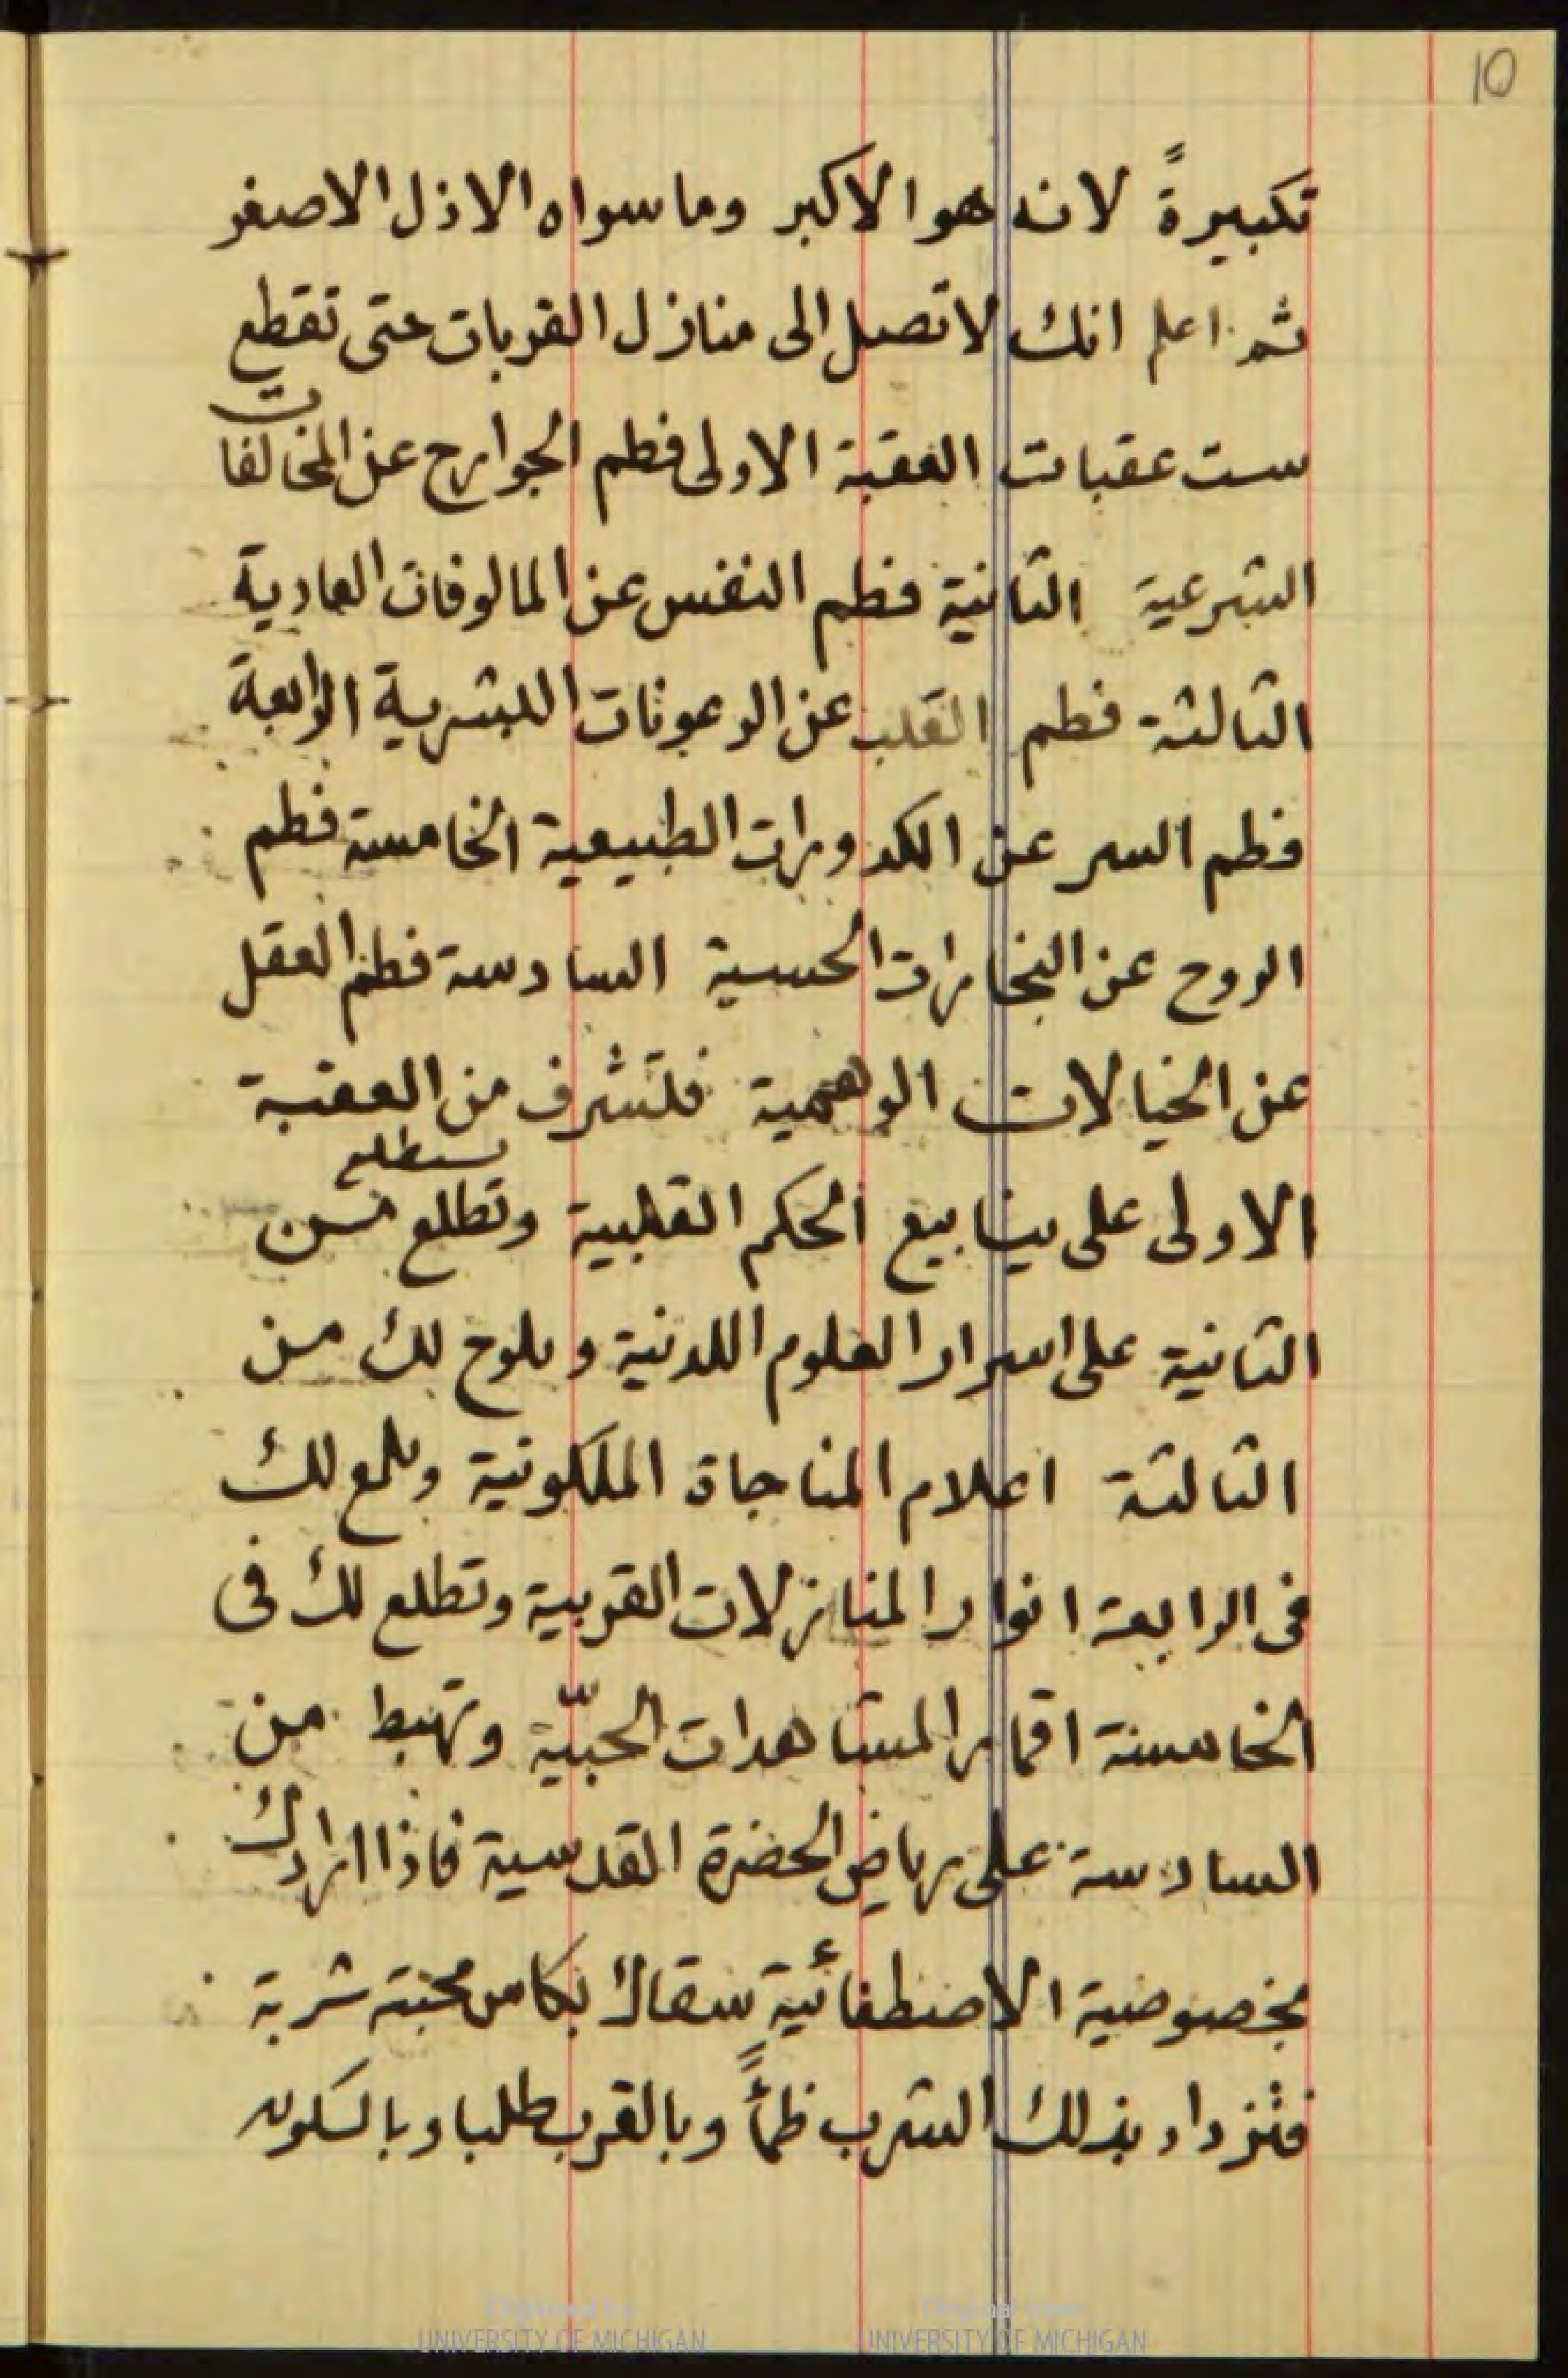 10
تكبيرةً لانه هو الاكبر وما سواه الاذل الاصغر
ثم اعلم انك لا تصل الى منازل القربات حتى تقطع
ست عقبات العقبة الاولى فطم الجوارح عن المخالفات
الشرعية الثانية فطم النفس عن المالوفات العادية
الثالثة فطم القلب عن الرعونات البشرية الرابعة
فطم السر عن الكدورات الطبيعية الخامسة فطم
الروح عن البخارات الحسية السادسة فطم العقل
عن الخيالات الوهمية فتشرف من العقبة
الاولى على ينابيع الحكم القلبية وتطلع من
الثانية على اسرار العلوم اللدنية ويلوح لك من
الثالثة اعلام المناجاة الملكوتية ويلمع لك
فى الرابعة انوار المنازلات القربية وتطلع لك فى
الخامسة اقمار المشاهدات الحبيّة وتهبط من
السادسة على رياض الحضرة القدسية فاذا ارادك
بخصوصية الاصطفائية سقاك بكاس محبته شربة
فتزداد بذلك الشرب ظمأً وبالقرب طلبا وبالسكون
Digitized by
UNIVERSITY OF MICHIGAN
Original from
UNIVERSITY OF MICHIGAN